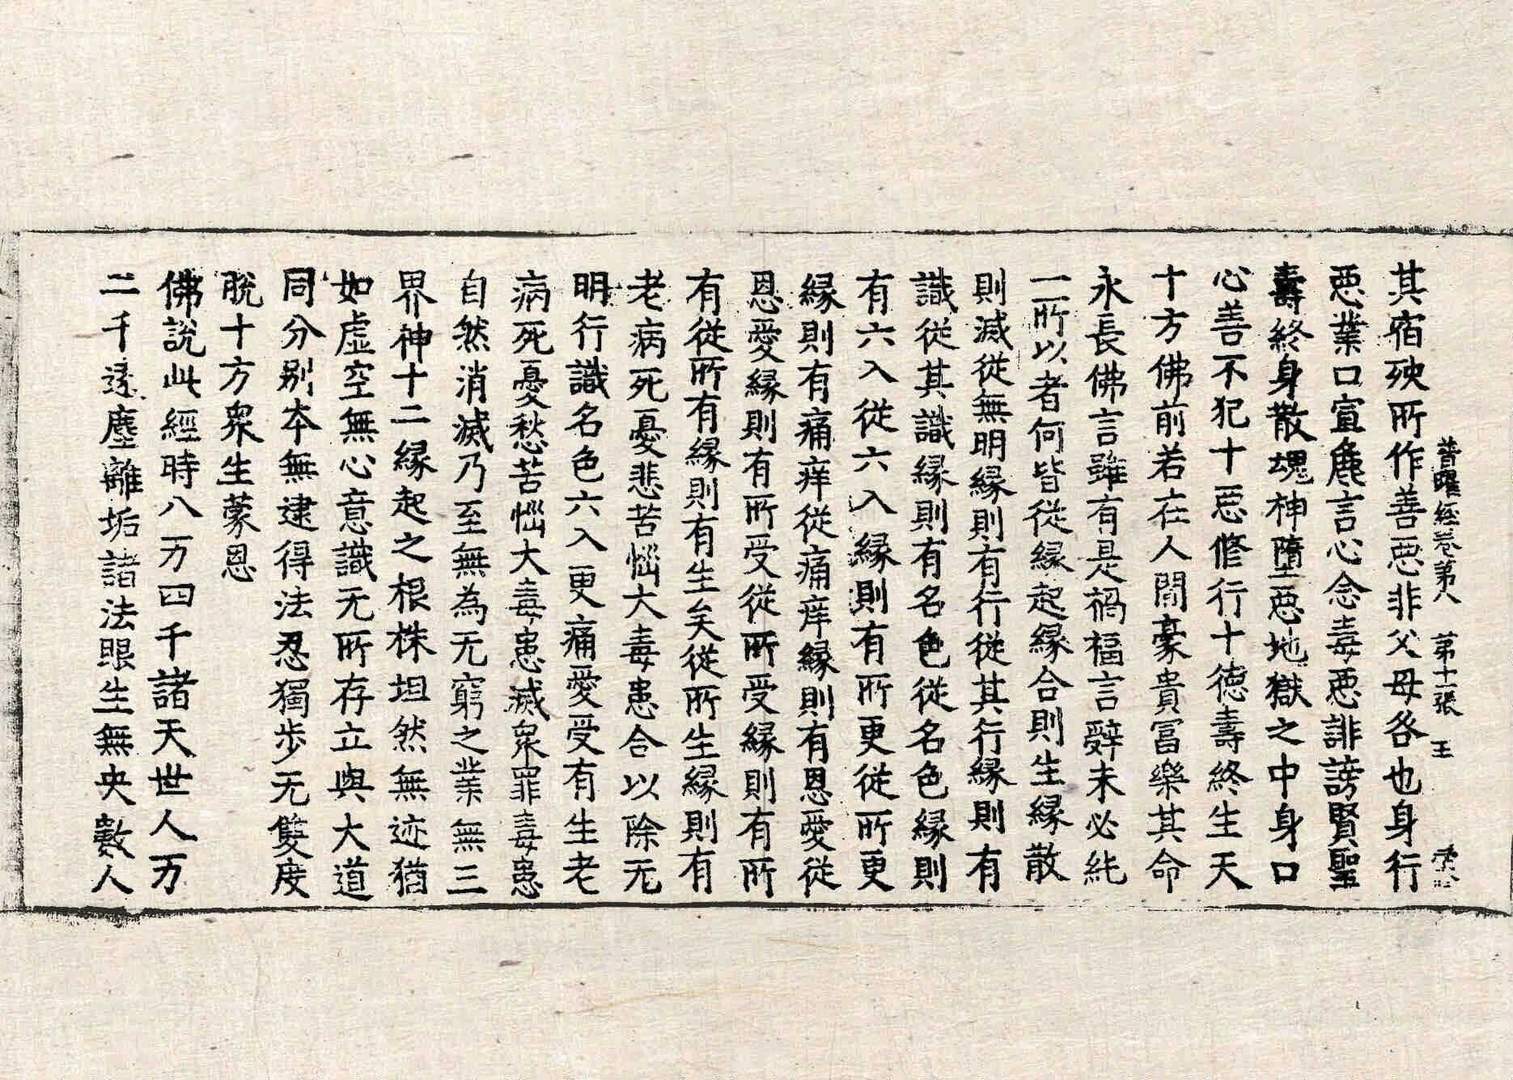 普曜經卷第八　第十一張　王
其宿殃所作善惡非父母各也身行
惡業口宣麁言心念毒惡誹謗賢聖
壽終身散塊神墮惡地獄之中身口
心善不犯十惡修行十德壽終生天
十方佛前若在人間豪貴富樂其命
永長佛言雖有是禍福言辝未必純
一所以者何皆從緣起緣合則生緣散
則滅從無明緣則有行從其行緣則有
識從其識緣則有名色從名色緣則
有六入從六入緣則有所更從所更
緣則有痛痒從痛痒緣則有恩愛從
恩愛緣則有所受從所受緣則有所
有從所有緣則有生矣從所生緣則有
老病死憂悲苦惱大毒患合以除无
明行識名色六入更痛愛受有生老
病死憂愁苦惱大毒患滅衆罪毒患
自然消滅乃至無為无窮之業無三
界神十二緣起之根株坦然無迹猶
如虛空無心意識无所存立與大道
同分别本無逮得法忍獨步无雙度
脫十方衆生蒙恩
佛說此經時八万四千諸天世人万
二千遠塵離垢諸法眼生無央數人